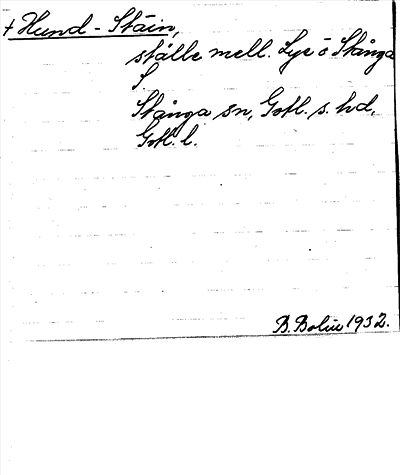 + Hund-Stäin,
ställe mell. Lye o Stånga
S.
Stånga sn, Gotl. s. hd,
Gotl. l.
B. Bolin 1932.